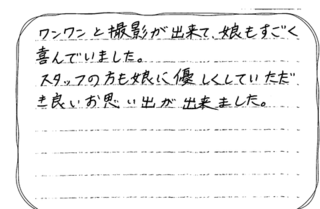 ワンワンと撮影が出来て、娘もすごく
喜んでいました。
スタッフの方も娘に優しくしていただ
き良いお思い出が出来ました。